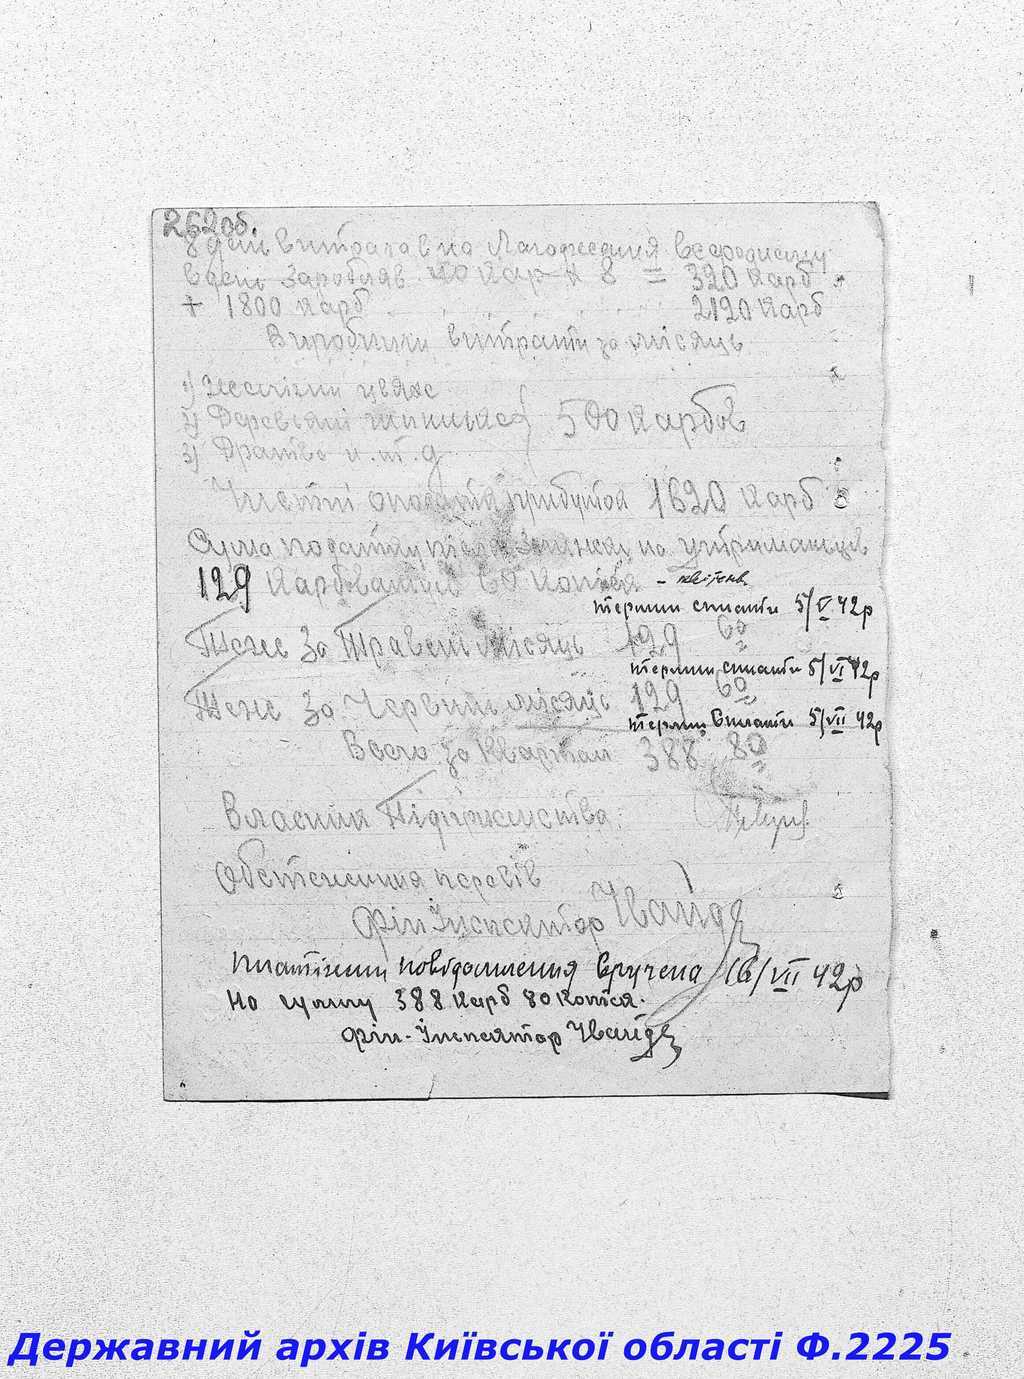 262 об.
8 день витрачав на Лагодження
в день заробляв 40 карб х 8 = 320 карб
+ 1800 карб 2120 карб
витрати за місяць
1) цвяхи
2) Деревьяні 500 карбов
3) Дратва и.т.д
Чисти прибуток 1620 карб
Сума податку після знижки на утриманців
129 Карбованців 60 копієк - квітень
термин сплати 5/V 42р
Теже За Травень місяць 129 60
термин сплати 5/VI 42р
Теже За Червинь місяць 129 60
термин сплати 5/VII 42р
Всего за Квартал 388 80
Власник Підприємства
Обстеження перевів
Фін Інспектор Чвайда
платіжни повідомлення вручена 16/VII 42р
На сумму 388 карб 80 копієк.
Фін-Інспектор Чвайда
Державний архів Київської області Ф.2225